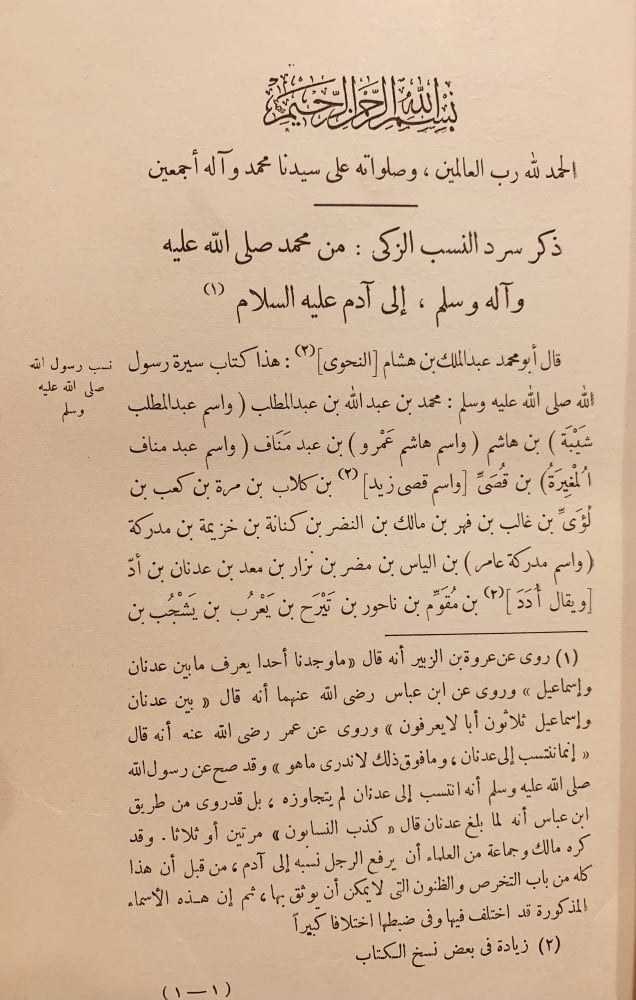 بسم الله الرحمن الرحيم
الحمد لله رب العالمين ، وصلواته على سيدنا محمد وآله أجمعين
ذكر سرد النسب الزكى : من محمد صلى الله عليه
وآله وسلم ، إلى آدم عليه السلام (١)
نسب رسول الله
صلى الله عليه
وسلم
قال أبو محمد عبد الملك بن هشام [النحوى] (٢) : هذا كتاب سيرة رسول
الله صلى الله عليه وسلم : محمد بن عبد الله بن عبد المطلب ( واسم عبد المطلب
شَيْبَة ) بن هاشم ( واسم هاشم عَمْرو ) بن عبد مَنَاف ( واسم عبد مناف
المُغِيرَةُ ) بن قُصَىِّ [واسم قصى زيد] (٢) بن كلاب بن مرة بن كعب بن
لُؤَىِّ بن غالب بن فهر بن مالك بن النضر بن كنانة بن خزيمة بن مدركة
( واسم مدركة عامر ) بن الياس بن مضر بن نزار بن معد بن عدنان بن أدّ
[ويقال أُدَدَ] (٢) بن مُقَوِّم بن ناحور بن تَيْرَح بن يَعْرُب بن يَشْجُب بن
(١) روى عن عروة بن الزبير أنه قال «ما وجدنا أحدا يعرف ما بين عدنان
وإسماعيل » وروى عن ابن عباس رضى الله عنهما أنه قال « بين عدنان
وإسماعيل ثلاثون أبا لا يعرفون » وروى عن عمر رضى الله عنه أنه قال
« إنما ننتسب إلى عدنان ، وما فوق ذلك لا ندرى ما هو » وقد صح عن رسول الله
صلى الله عليه وسلم أنه انتسب إلى عدنان لم يتجاوزه ، بل قد روى من طريق
ابن عباس أنه لما بلغ عدنان قال « كذب النسابون » مرتين أو ثلاثا . وقد
كره مالك وجماعة من العلماء أن يرفع الرجل نسبه إلى آدم ، من قبل أن هذا
كله من باب التخرص والظنون التى لا يمكن أن يوثق بها ، ثم إن هذه الأسماء
المذكورة قد اختلف فيها وفى ضبطها اختلافا كبيراً
(٢) زيادة فى بعض نسخ الكتاب
(١ — ١)